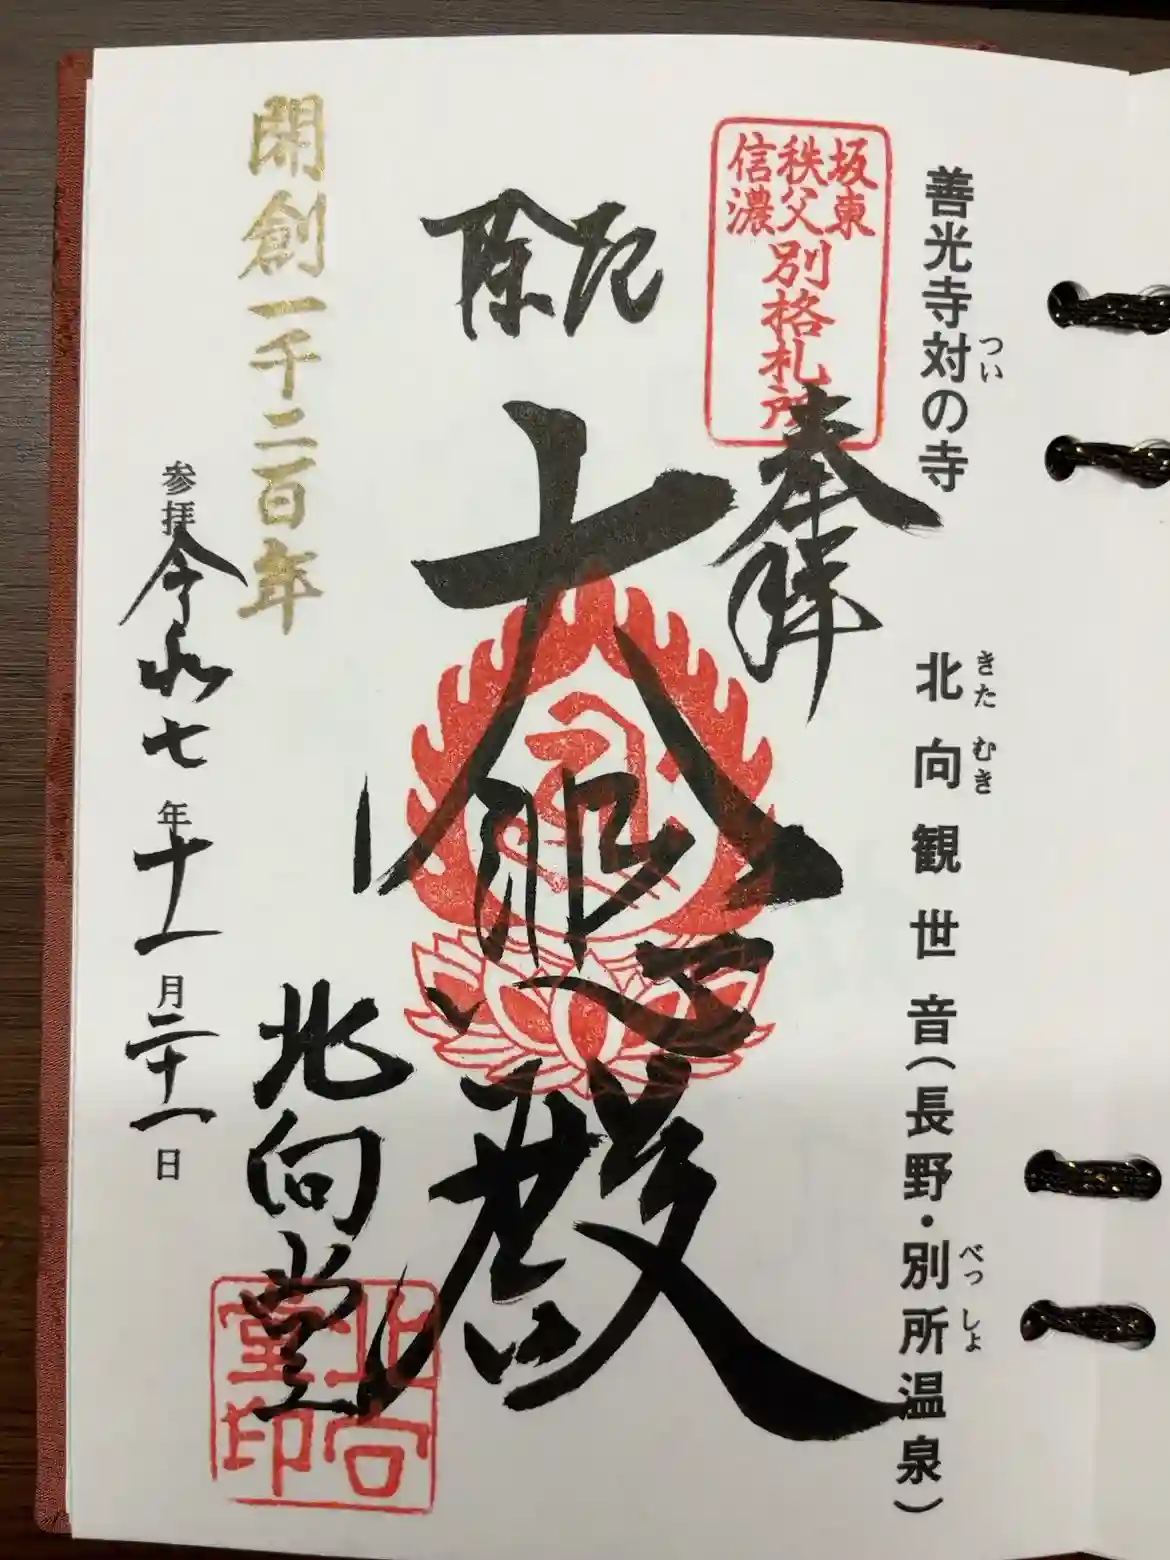 善光寺対の寺
つい
北向観世音(長野・別所温泉)
きた むき
べっ しょ
坂東
秩父
信濃
別格札所
奉拝
厄除
大悲殿
北向堂
北向
堂印
開創一千二百年
参拝令和七年十一月二十一日